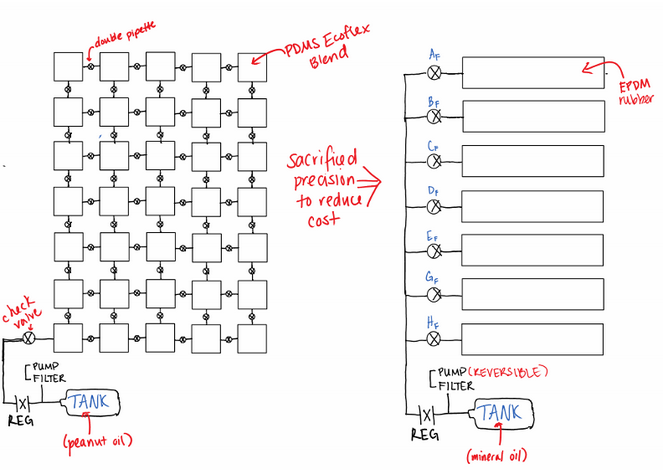 double pipette
PDMS Ecoflex
Blend
check
valve
PUMP
FILTER
TANK
REG
(peanut oil)
Sacrificed
precision
to reduce
cost
AF
BF
CF
DF
EF
GF
HF
EPDM
rubber
PUMP (REVERSIBLE)
FILTER
TANK
REG
(mineral oil)